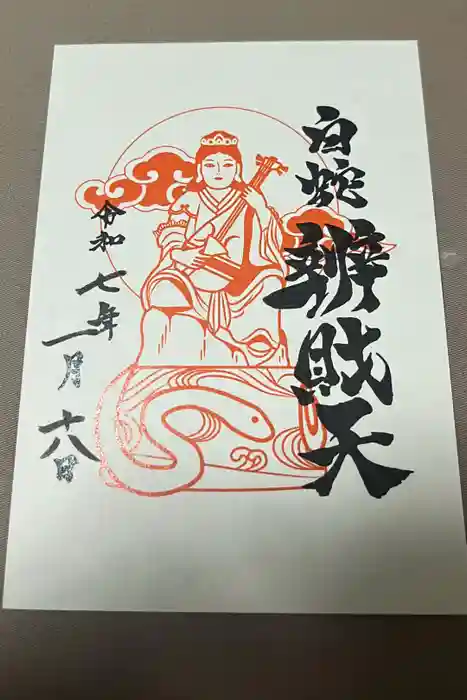 白蛇辨財天
令和七年一月十六日